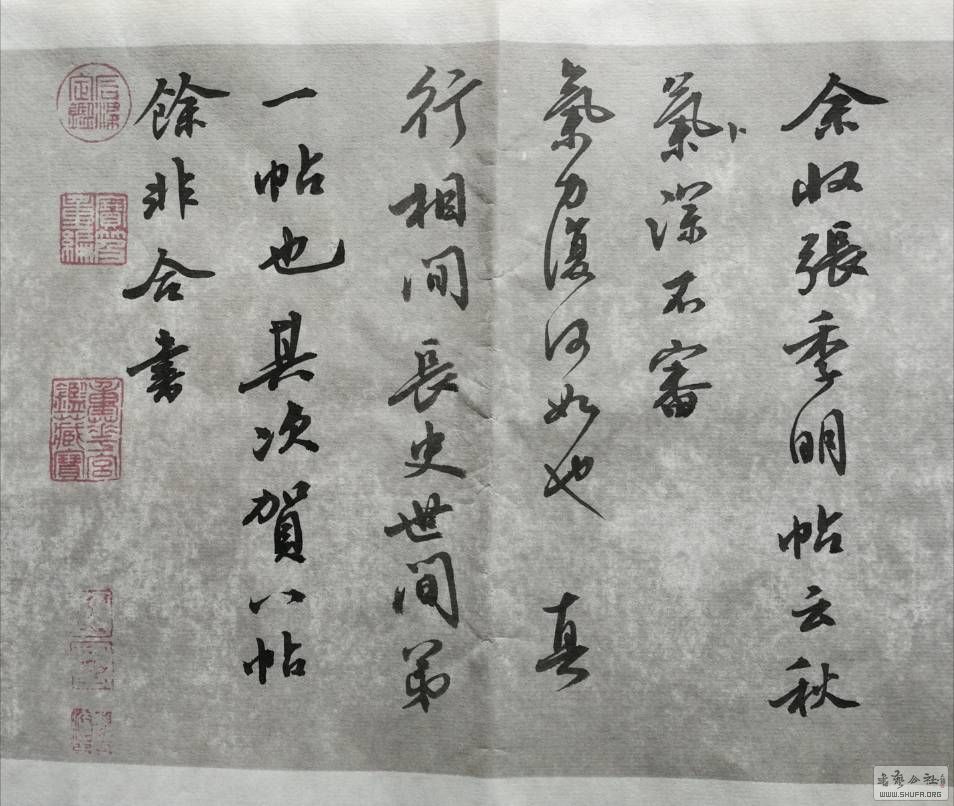 余收張季明帖云秋
氣深不審
氣力復何如也 真
行相間長史世間第
一帖也其次賀八帖
餘非合書
石渠定鑑
寶笈重編
董華宮鑑藏寶
書藝公社
WWW.SHUFA.ORG